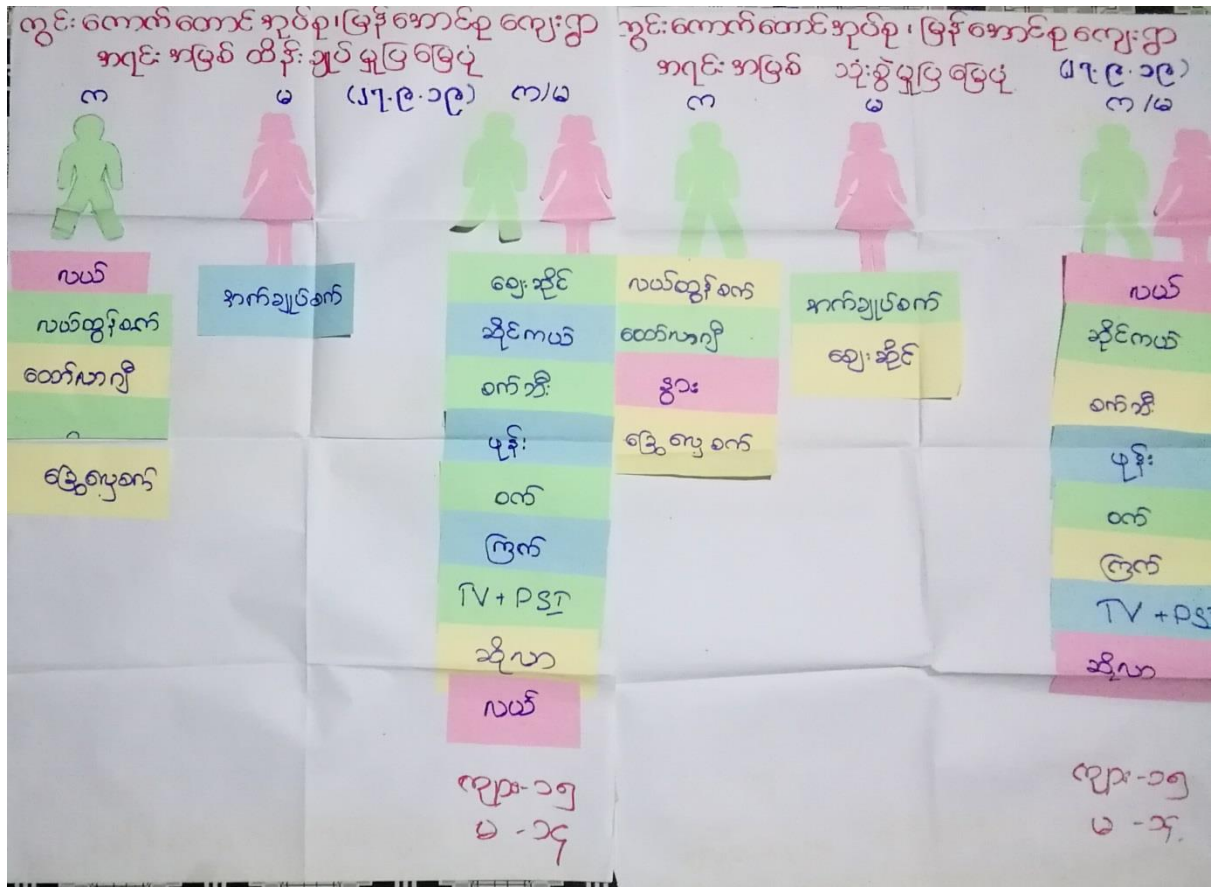 ကွင်းကောက်တောင်အုပ်စု၊ မြန်အောင်စု ကျေးရွာ
အရင်းအမြစ် ထိန်းချုပ်မှုပြ မြေပုံ
က
မ
(၂၇.၉.၁၉)
က/မ
လယ်
လယ်ထွန်စက်
ထော်လာဂျီ
ခြွေလှေ့စက်
အက်ချုပ်စက်
ဈေးဆိုင်
ဆိုင်ကယ်
စက်ဘီး
ဖုန်း
ဝက်
ကြက်
TV + PSI
ဆိုလာ
လယ်
ကျား-၁၅
မ -၁၄
ကွင်းကောက်တောင်အုပ်စု၊ မြန်အောင်စု ကျေးရွာ
အရင်းအမြစ် သုံးစွဲမှုပြ မြေပုံ
(၂၇.၉.၁၉)
က
မ
က/မ
လယ်ထွန်စက်
ထော်လာဂျီ
နွား
ခြွေလှေ့စက်
အက်ချုပ်စက်
ဈေးဆိုင်
လယ်
ဆိုင်ကယ်
စက်ဘီး
ဖုန်း
ဝက်
ကြက်
TV + PS
ဆိုလာ
ကျား-၁၅
မ -၁၄.